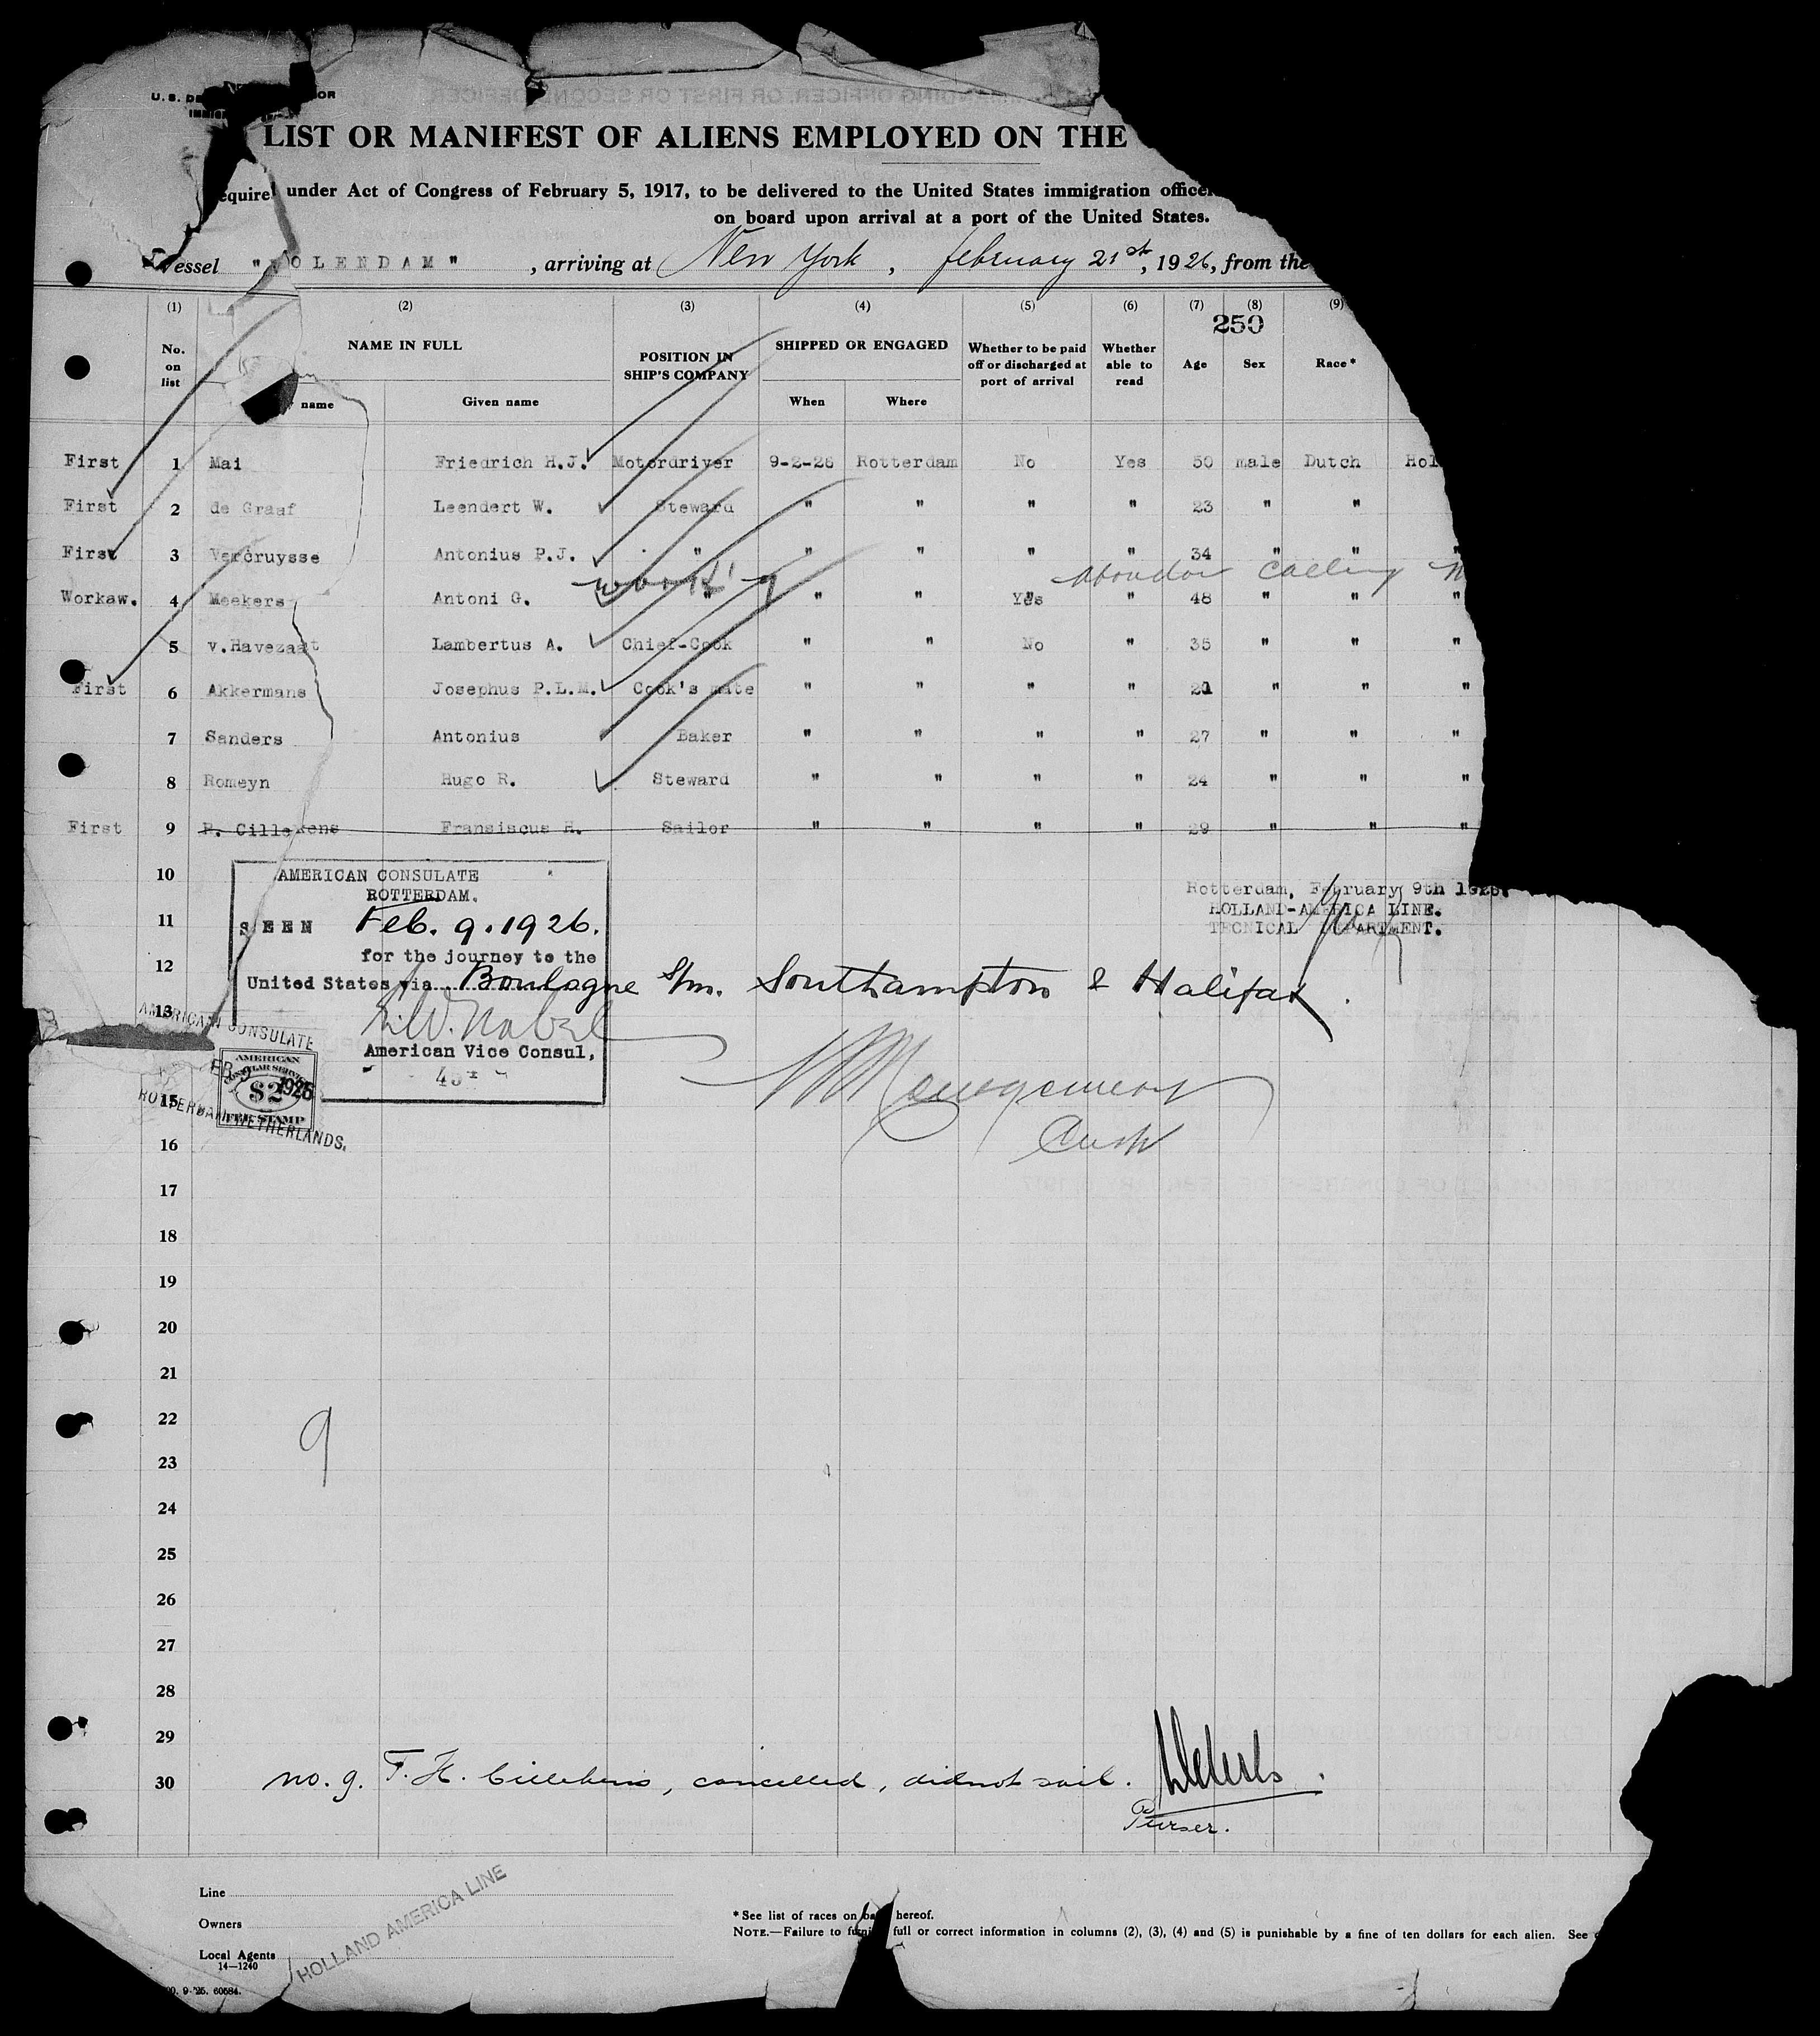 U. S. DE OR
LIST OR MANIFEST OF ALIENS EMPLOYED ON THE
equire under Act of Congress of February 5, 1917, to be delivered to the United States immigration officer
on board upon arrival at a port of the United States.
essel "VOLENDAM" , arriving at New York , february 21st, 1926, from the
(1) (2) (3) (4) (5) (6) (7) (8) (9)
250
No. on list NAME IN FULL POSITION IN SHIP'S COMPANY SHIPPED OR ENGAGED Whether to be paid off or discharged at port of arrival Whether able to read Age Sex Race*
name Given name When Where
First 1 Mai Friedrich H.J. Motordriver 9-2-26 Rotterdam No Yes 50 male Dutch Hol
First 2 de Graaf Leendert W. Steward " " " " 23 " "
First 3 Vercruysse Antonius P.J. " " " " " 34 " " "
working Calling
Workaw. 4 Meekers Antoni G. " " " Yes " 48 " " "
5 v.Havezaat Lambertus A. Chief-Cook " " No " 35 " " "
First 6 Akkermans Josephus P.L.M. Cook's mate " " " " 21 " " "
7 Sanders Antonius Baker " " " " 27 " " "
8 Romeyn Hugo R. Steward " " " " 24 " " "
First 9 P. Cillekens Fransiscus H. Sailor " " " " 29 " " "
10
AMERICAN CONSULATE
ROTTERDAM.
Rotterdam, February 9th 1926.
HOLLAND-AMERICA LINE.
TECNICAL DEPARTMENT.
11 SEEN Feb. 9. 1926.
for the journey to the
12
United States via Boulogne s/m. Southampton & Halifax.
13
AMERICAN CONSULATE
American Vice Consul,
AMERICAN
CONSULAR SERVICE
$2
FEE STAMP
FEB 9 1926
ROTTERDAM NETHERLANDS.
15
Montgomery
16
17
18
19
20
21
22
9
23
24
25
26
27
28
29
30 no. 9. F. H. Cillekens, cancelled, did not sail.
Purser.
Line
Owners
Local Agents
14—1240
HOLLAND AMERICA LINE
* See list of races on ba hereof.
NOTE.—Failure to furni full or correct information in columns (2), (3), (4) and (5) is punishable by a fine of ten dollars for each alien. See
9-'25. 60584.